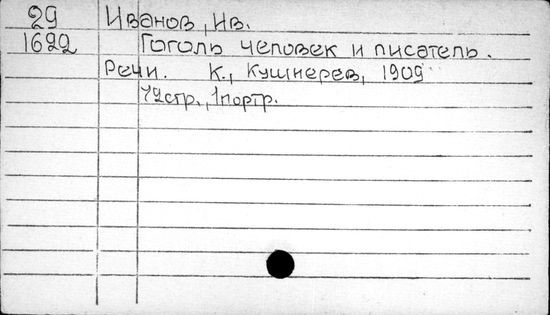 29 Иванов, Ив.
1622 Гоголь человек и писатель.
Речи. К., Кушнерев, 1909
72стр., 1портр.